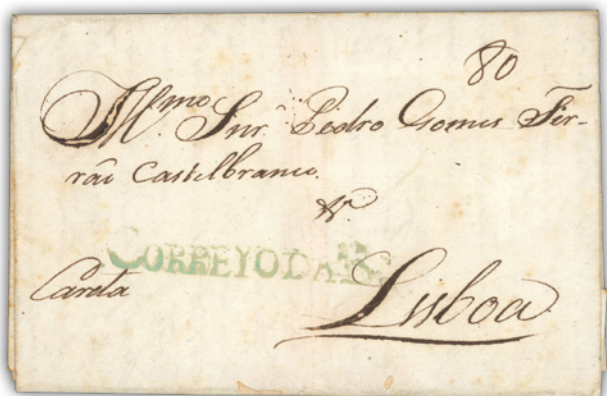 80
Illmo Snr Pedro Gomes Fer-
rão Castelbranco.
CORREYO DA BA
Careta
Lisboa